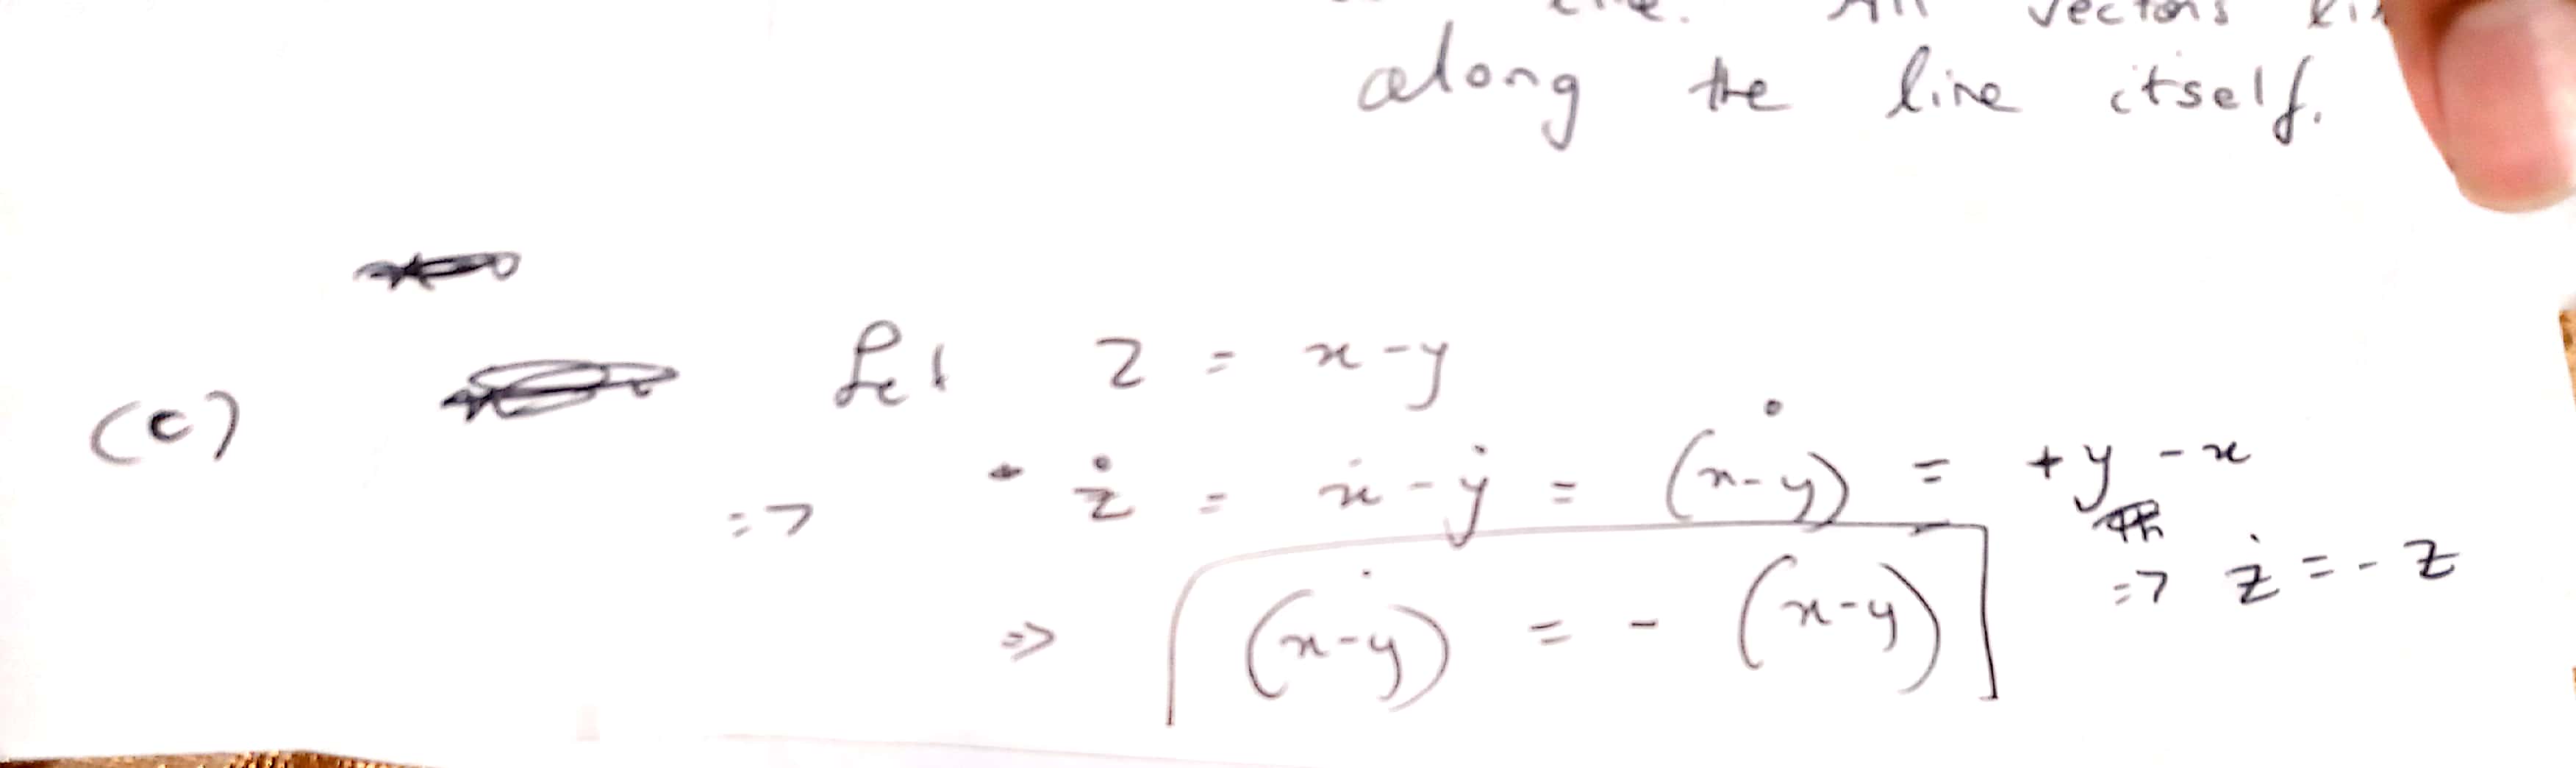 All vectors
along the line itself.
(c) Let z = x-y
=> ż = ẋ - ẏ = (x-y)˙ = +y - x
=> ż = - z
=> (x-y)˙ = - (x-y)